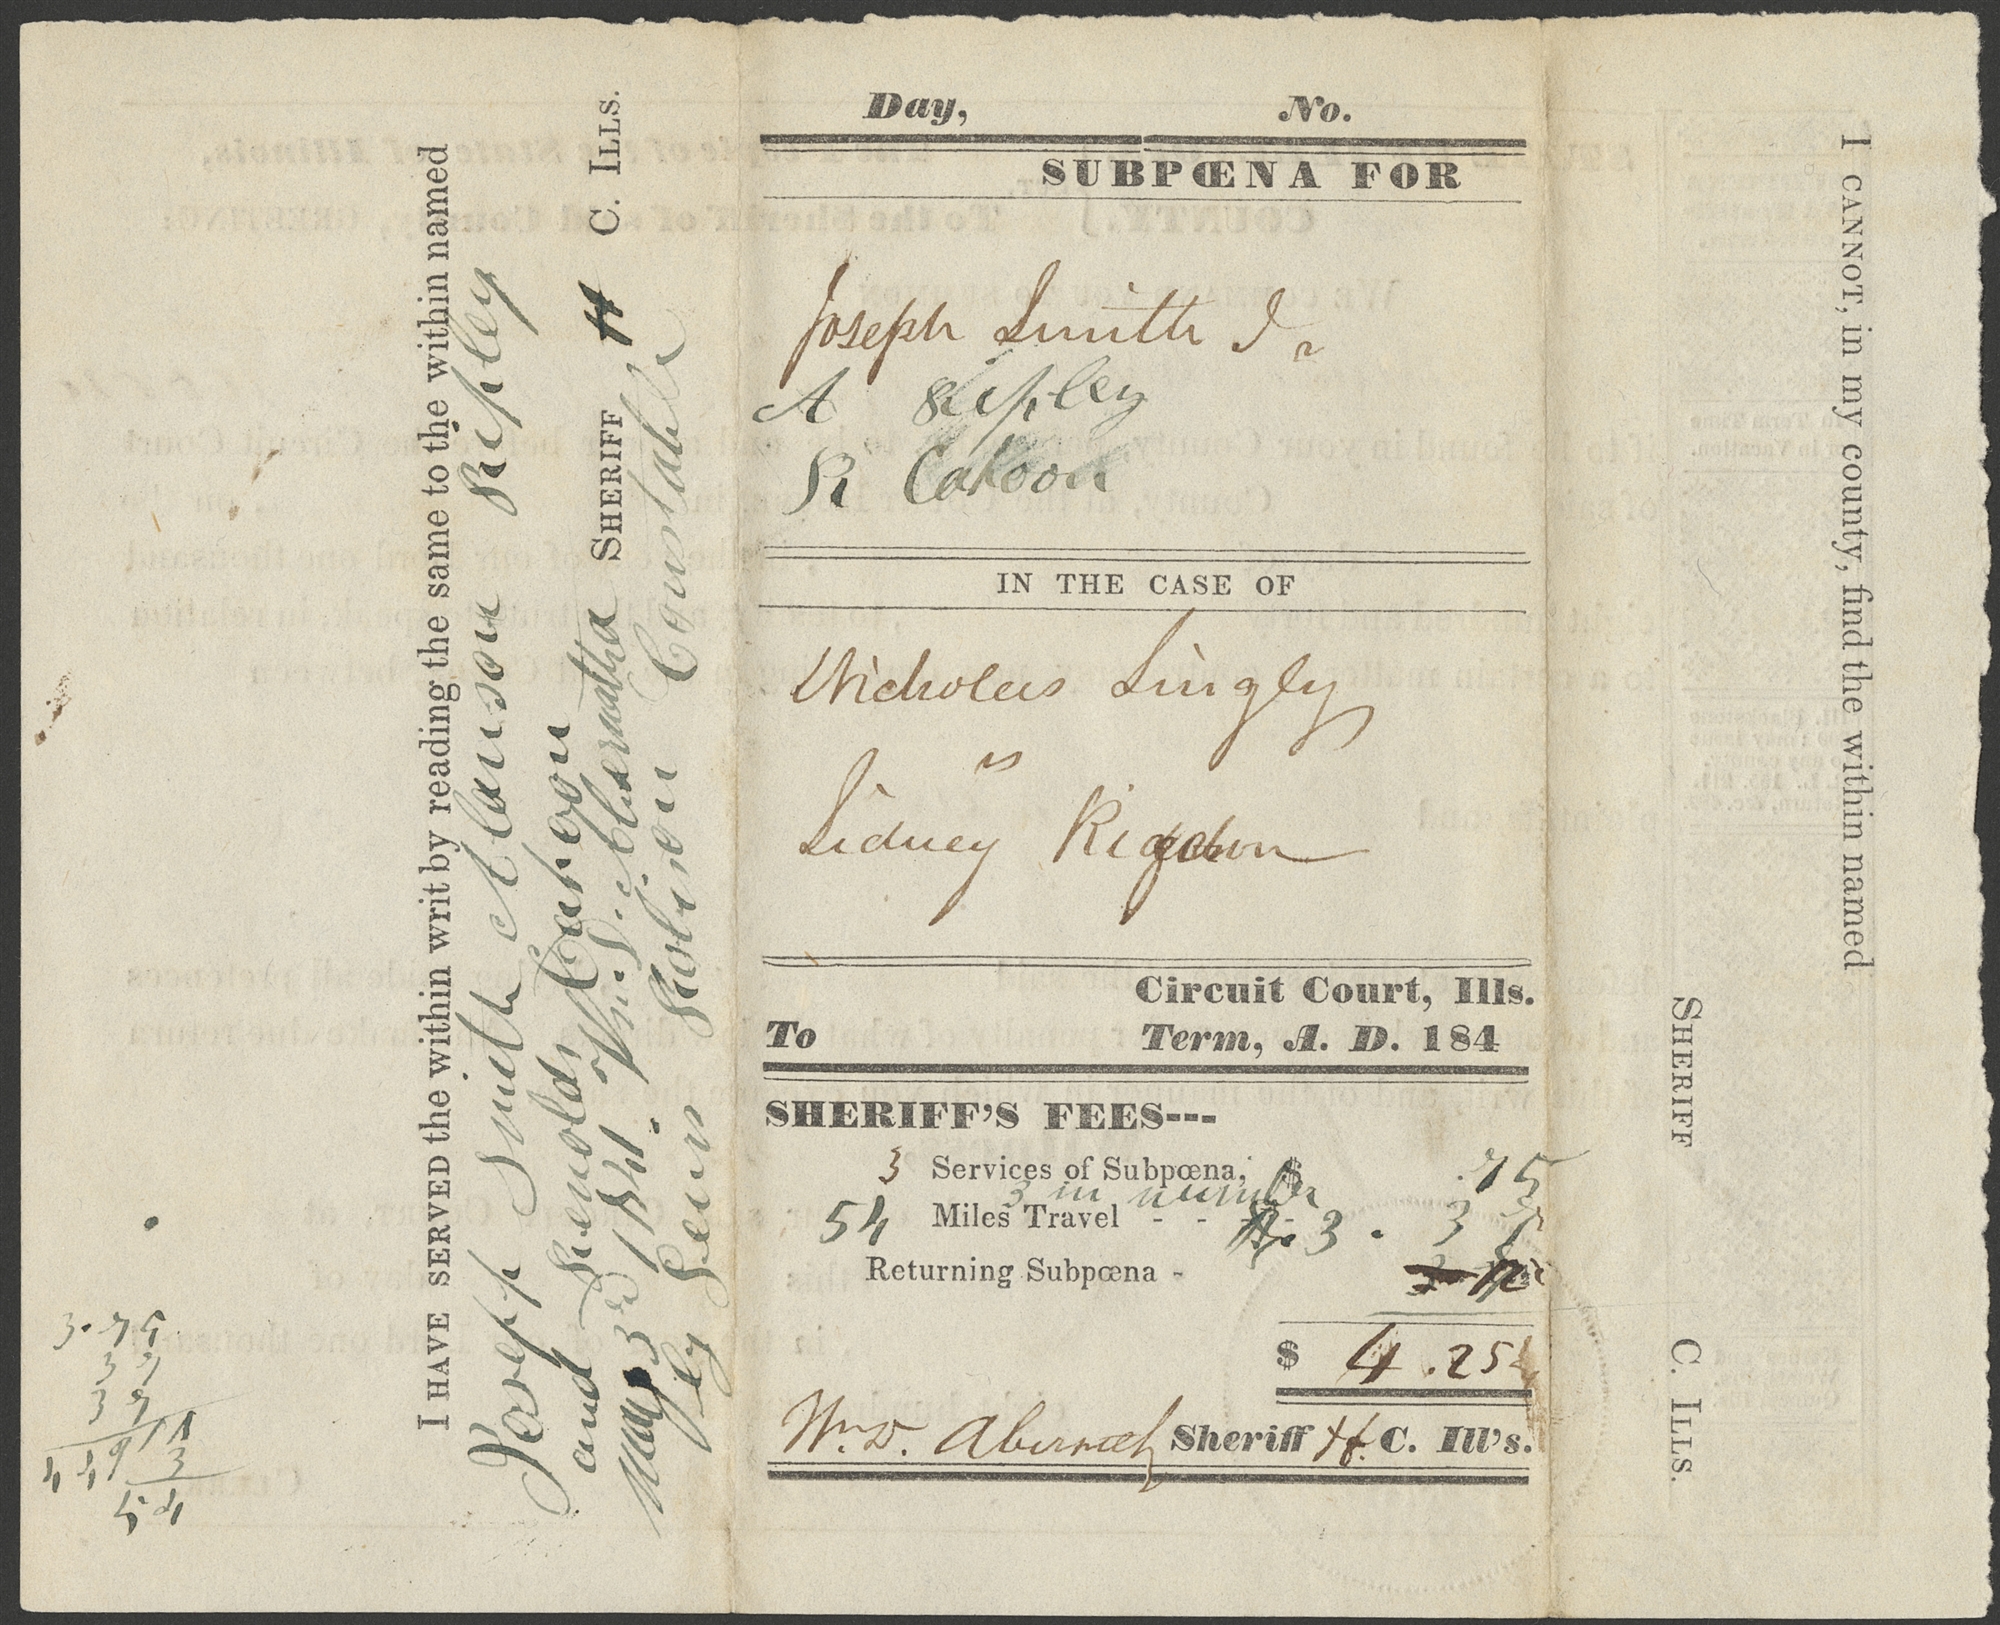 I HAVE SERVED the within writ by reading the same to the within named
Joseph Smith Alanson Ripley
and Renolds Cahoon
May 3rd 1841. Wm. D. Abernatha SHERIFF H C. ILLS.
By Lewis Robison Constable
Day, No.
SUBPŒNA FOR
Joseph Smith Jr
A Ripley
R Cahoon
IN THE CASE OF
Nicholas Singly
vs
Sidney Rigdon
Circuit Court, Ills.
To Term, A. D. 184
SHERIFF'S FEES---
3 Services of Subpœna, $ .75
3 in number
54 Miles Travel - - 3
Returning Subpœna -
$ 4.25
Wm. D. Abernethy Sheriff H. C. Ill's.
I CANNOT, in my county, find the within named
SHERIFF C. ILLS.
3.75
3
54